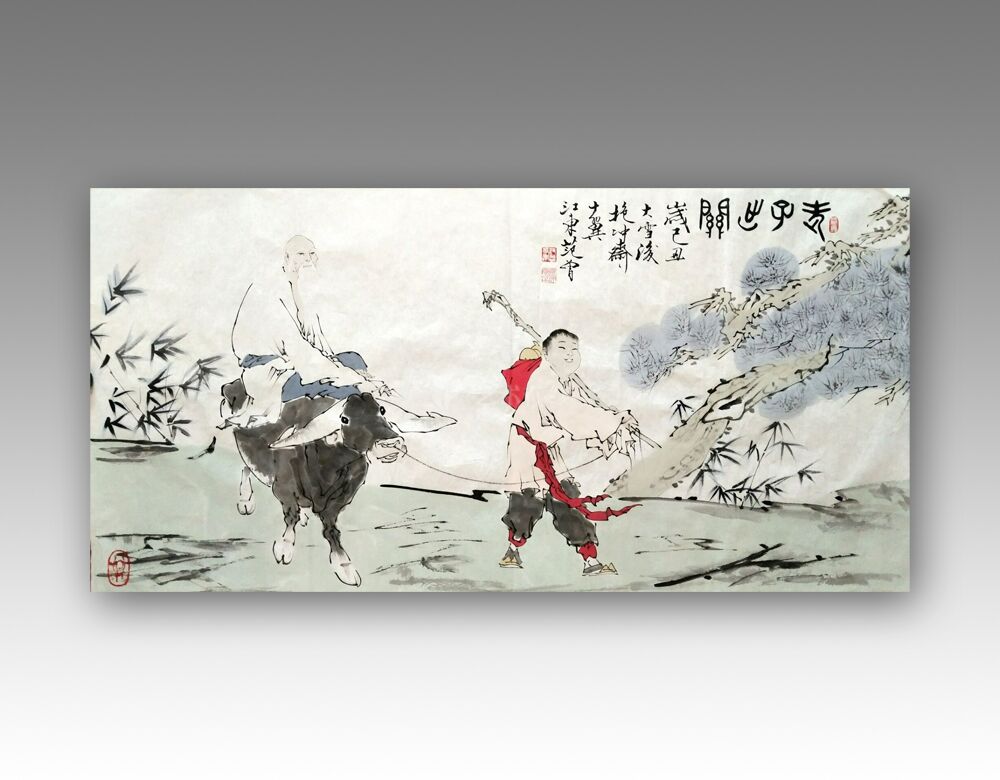 老子出關
歲己丑
大雪後
抱冲齋
十翼
江東范曾